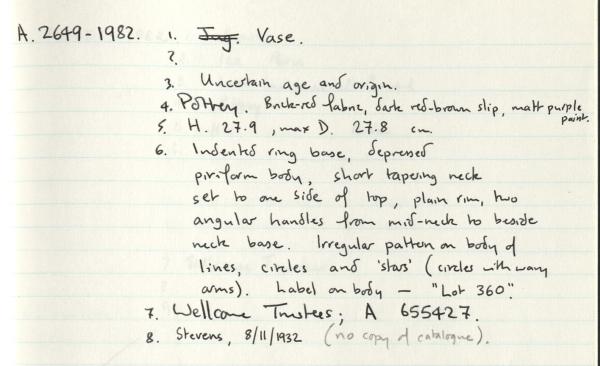 A. 2649-1982. 1. Jug. Vase.
2.
3. Uncertain age and origin.
4. Pottery. Brick-red fabric, dark red-brown slip, matt purple paint.
5. H. 27.9, max D. 27.8 cm.
6. Indented ring base, depressed
piriform body, short tapering neck
set to one side of top, plain rim, two
angular handles from mid-neck to beside
neck base. Irregular pattern on body of
lines, circles and 'stars' (circles with wavy
arms). Label on body — "Lot 360".
7. Wellcome Trustees; A 655427.
8. Stevens, 8/11/1932 (no copy of catalogue).